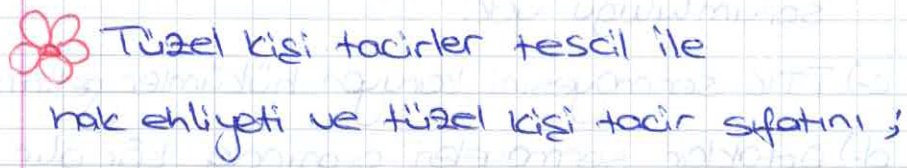 Tüzel kişi tacirler tescil ile
hak ehliyeti ve tüzel kişi tacir sıfatını ;